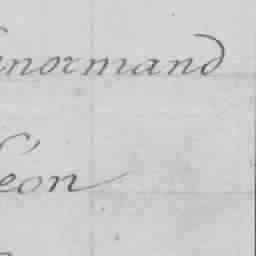 normand
eon